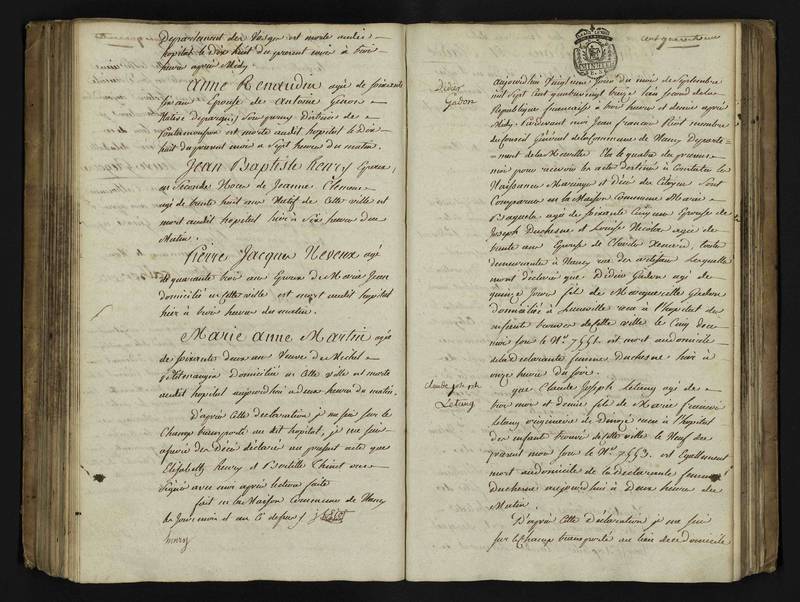 Departement des Vosges est morte audit
hopital le dix huit du present mois à trois
heures après Midy.
Anne Renaudin agée de soixante
ans Epouse de Antoine
Native
est morte audit hopital le Dix
huit du present mois à Sept heures du matin.
Jean Baptiste Henry Epoux
en Secondes Noces de Jeanne Clement
agé de trente huit ans Natif de Cette ville est
mort audit hopital hier à Six heures du
Matin.
Pierre Jacques Neveux agé
de quarante trois ans Epoux de Marie Jean
domicilié en Cette ville est mort audit hopital
hier à trois heures du matin.
Marie Anne Martin agée
de soixante deux ans Veuve de Michel
Domiciliée en Cette ville est morte
audit hopital aujourd'hui à deux heures du matin.
D'après Cette déclaration je me suis sur le
Champ transporté au dit hopital, je me suis
assuré des Décès déclarés au present acte que
Elisabeth henry et
Signé avec moi après lecture faite
fait en la Maison Commune de Nancy
les Jour mois et an Ci dessus
henry
Didier
Gadon
aujourd'hui Vingt une Jour du mois de Septembre
mil Sept Cent quatrevingt treize l'an Second de la
Republique francaise à trois heures et demie après
Midy. Pardevant moi Jean francois Riot membre
du Conseil Général de la Commune de Nancy Departe
ment de la Meurthe Elu le quatre du present
mois pour recevoir les actes destinés à Constater les
Naissances Mariages et décès des Citoyens Sont
Comparues en la Maison Commune Marie
agée de soixante Cinq ans Epouse de
Joseph Duchesne et Louise Nicolas agée de
trente ans Epouse de Claude toutes
demeurantes à Nancy rue des artisans Lesquelles
m'ont déclaré que Didier Gadon agé de
quinze Jours fils de Margueritte Gadon
domiciliée à Luneville recu à l'hopital des
enfants trouvés de Cette ville le Cinq du
mois sous le N.º 7551. est mort au domicile
de la Declarante femme Duchesne hier à
onze heures du soir.
Claude jph
Letang
que Claude Joseph Letang agé de
trois mois et demie fils de Marie francois
Letang originaire de recu à l'hopital
des enfants trouvés de Cette ville le Neuf du
présent mois sous le N.º 7553. est Egallement
mort au domicile de la declarante femme
Duchesne aujourd'hui à Deux heures du
Matin.
D'après Cette Déclaration je me suis
sur le Champ transporté au lieu de ce domicile